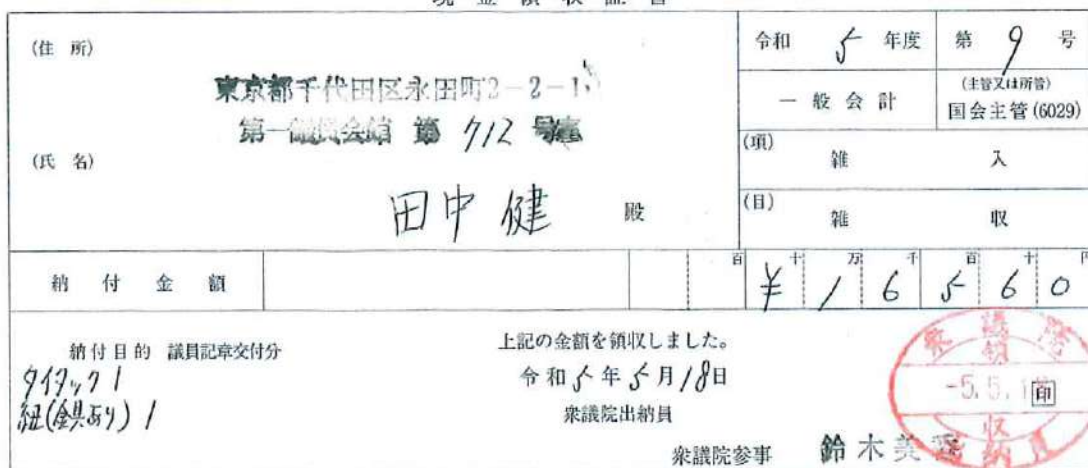 現金領収証書
(住所)
東京都千代田区永田町2-2-1
第一議員会館 第 712 号室
(氏名)
田中健 殿
令和 5 年度 第 9 号
一般会計 (主管又は所管) 国会主管(6029)
(項) 雑入
(目) 雑収
百 十 万 千 百 十 円
納付金額 ¥16560
納付目的 議員記章交付分
タイタック1
紐(金具あり)1
上記の金額を領収しました。
令和5年5月18日
衆議院出納員
衆議院参事 鈴木美
衆議院
領
-5.5.1
印
収
納